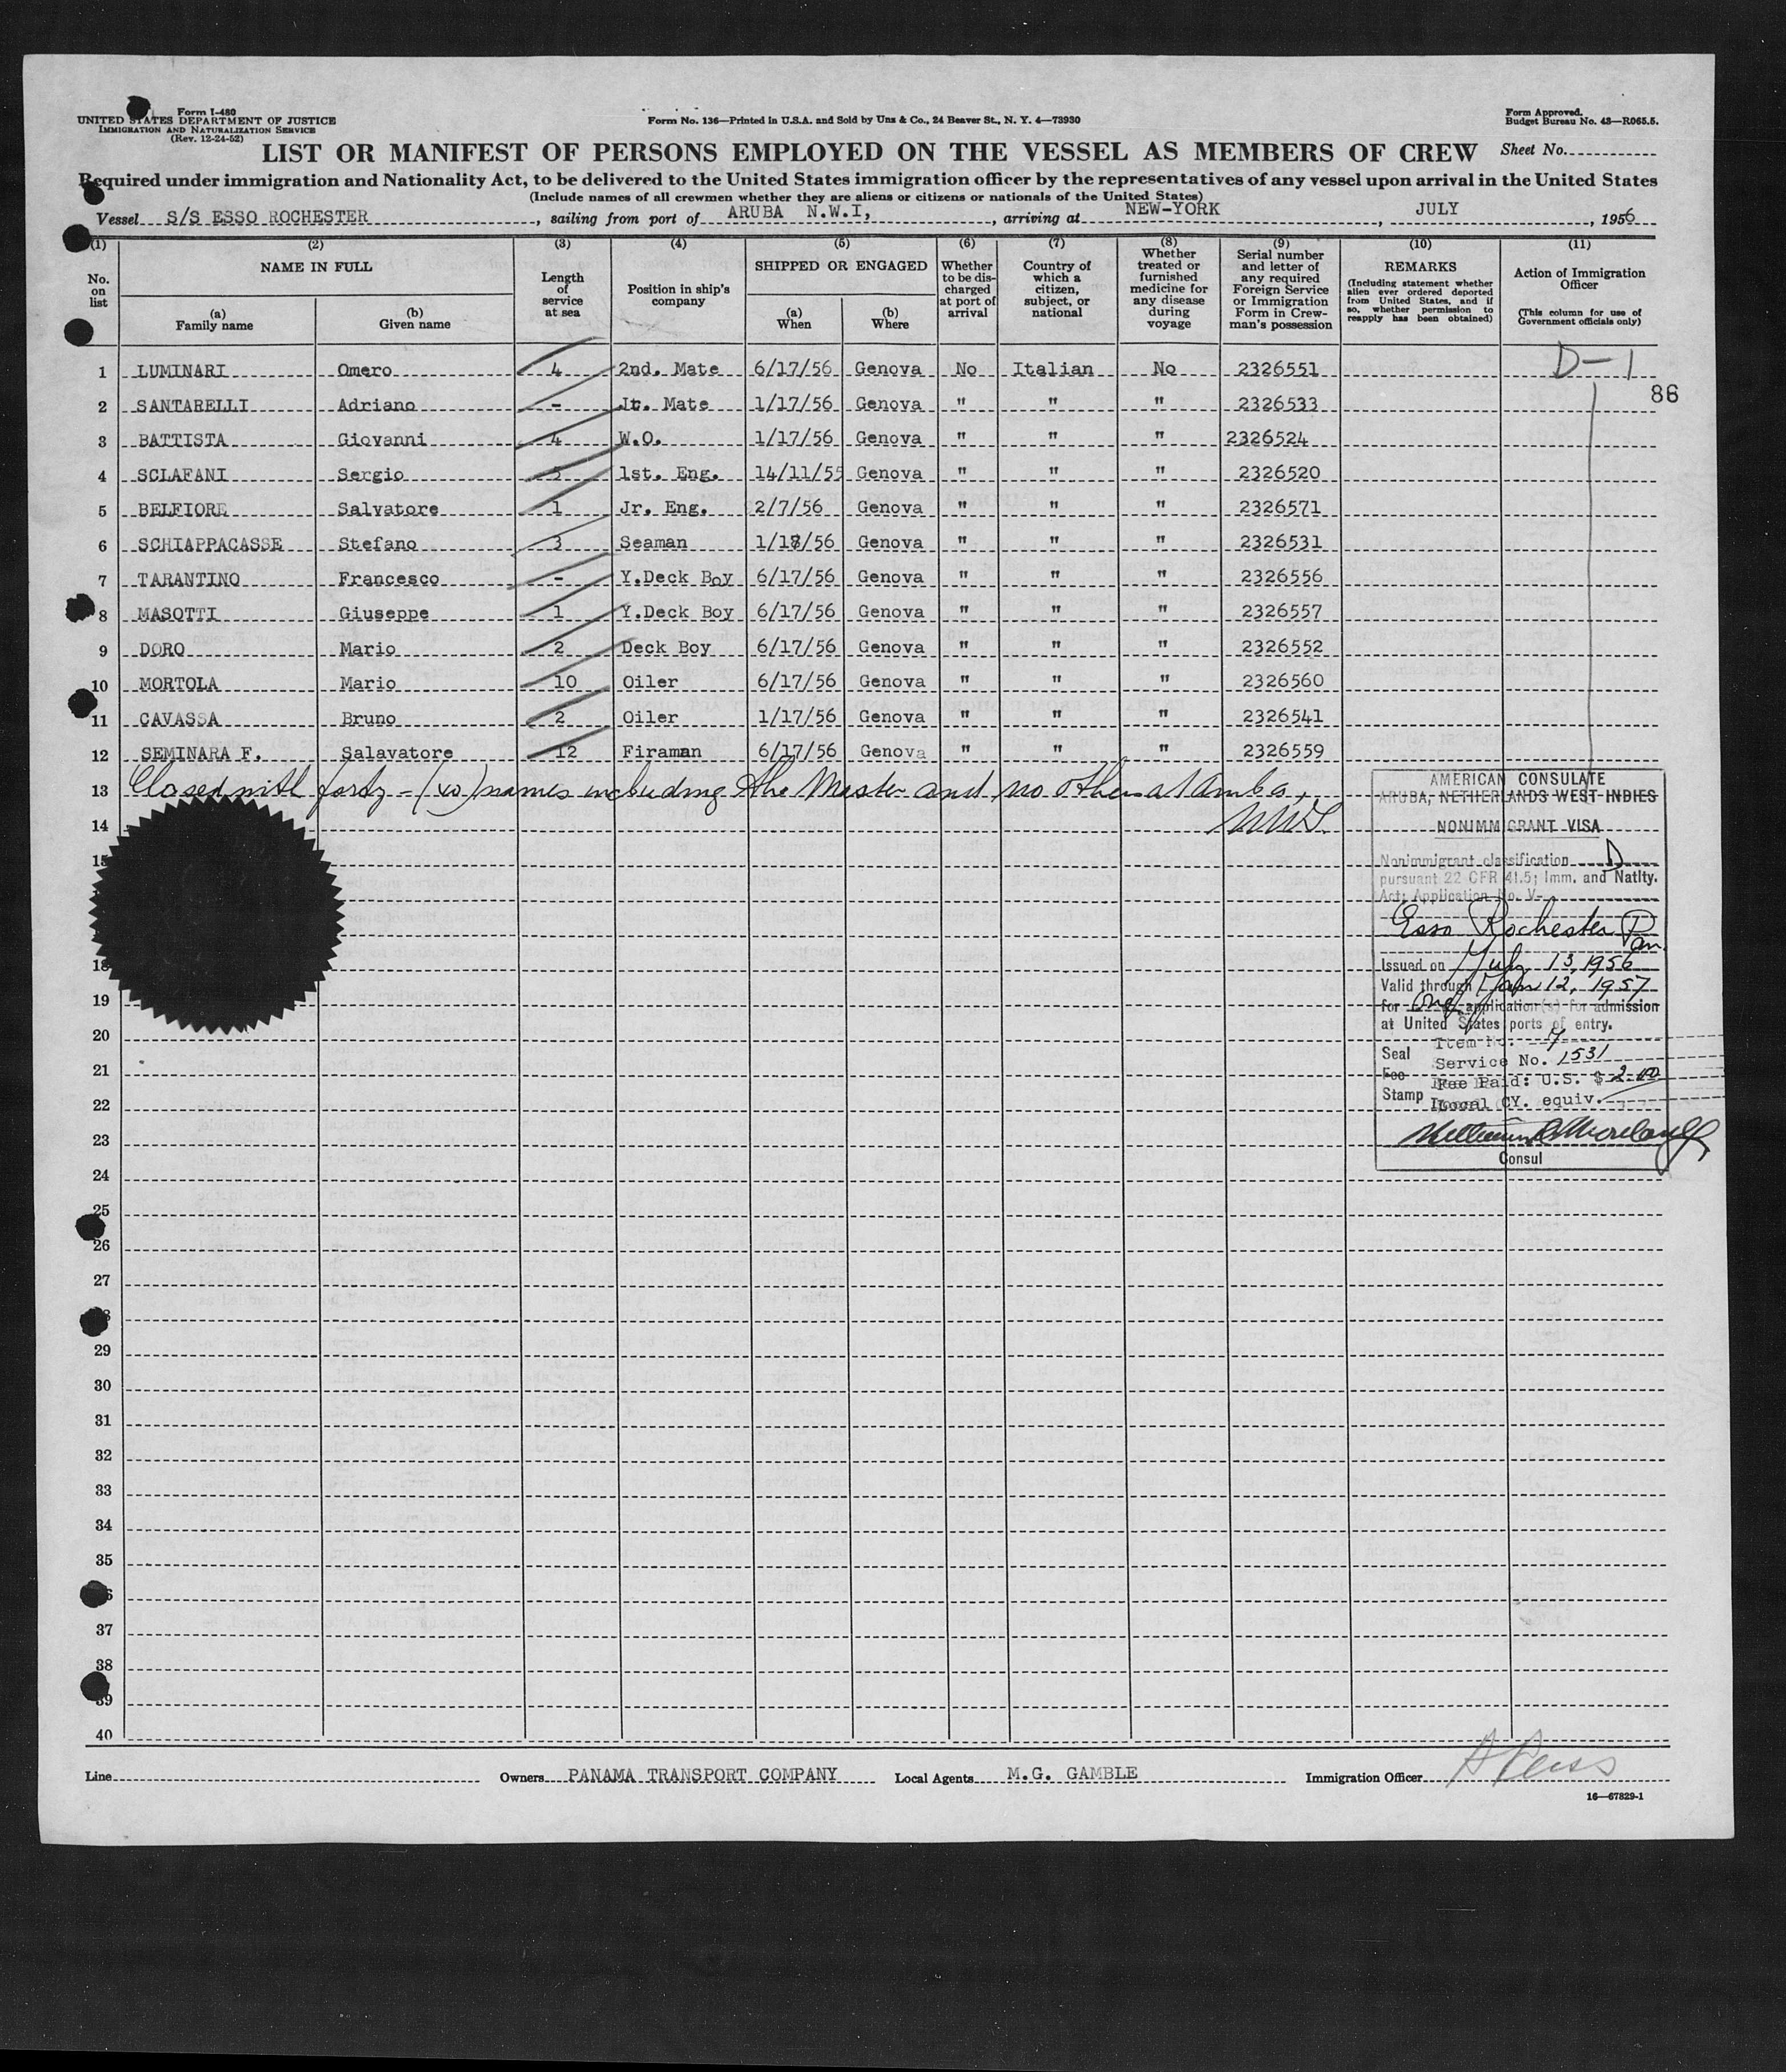 Form I-480
UNITED STATES DEPARTMENT OF JUSTICE
IMMIGRATION AND NATURALIZATION SERVICE
(Rev. 12-24-52)
Form No. 136—Printed in U.S.A. and Sold by Unz & Co., 24 Beaver St., N. Y. 4—73930
Form Approved.
Budget Bureau No. 43—R065.5.
LIST OR MANIFEST OF PERSONS EMPLOYED ON THE VESSEL AS MEMBERS OF CREW Sheet No.
Required under immigration and Nationality Act, to be delivered to the United States immigration officer by the representatives of any vessel upon arrival in the United States
(Include names of all crewmen whether they are aliens or citizens or nationals of the United States)
Vessel S/S ESSO ROCHESTER, sailing from port of ARUBA N.W.I, , arriving at NEW-YORK, JULY, 1956
(1) (2) (3) (4) (5) (6) (7) (8) (9) (10) (11)
No. on list
NAME IN FULL
(a) Family name
(b) Given name
Length of service at sea
Position in ship's company
SHIPPED OR ENGAGED
(a) When
(b) Where
Whether to be discharged at port of arrival
Country of which a citizen, subject, or national
Whether treated or furnished medicine for any disease during voyage
Serial number and letter of any required Foreign Service or Immigration Form in Crewman's possession
REMARKS
(Including statement whether alien ever ordered deported from United States, and if so, whether permission to reapply has been obtained)
Action of Immigration Officer
(This column for use of Government officials only)
1 LUMINARI Omero 4 2nd. Mate 6/17/56 Genova No Italian No 2326551 D-1
86
2 SANTARELLI Adriano - Jr. Mate 1/17/56 Genova " " " 2326533
3 BATTISTA Giovanni 4 W.O. 1/17/56 Genova " " " 2326524
4 SCLAFANI Sergio 5 1st. Eng. 14/11/55 Genova " " " 2326520
5 BELFIORE Salvatore 1 Jr. Eng. 2/7/56 Genova " " " 2326571
6 SCHIAPPACASSE Stefano 3 Seaman 1/18/56 Genova " " " 2326531
7 TARANTINO Francesco - Y.Deck Boy 6/17/56 Genova " " " 2326556
8 MASOTTI Giuseppe 1 Y.Deck Boy 6/17/56 Genova " " " 2326557
9 DORO Mario 2 Deck Boy 6/17/56 Genova " " " 2326552
10 MORTOLA Mario 10 Oiler 6/17/56 Genova " " " 2326560
11 CAVASSA Bruno 2 Oiler 1/17/56 Genova " " " 2326541
12 SEMINARA F. Salavatore 12 Firaman 6/17/56 Genova " " " 2326559
13 Closed with forty = (40) names including the Master and no other at Aruba,
14 NWI
AMERICAN CONSULATE
ARUBA, NETHERLANDS WEST INDIES
NONIMMIGRANT VISA
Nonimmigrant classification D
pursuant 22 CFR 41.5; Imm. and Natlty.
Act; Application No. V-
Esso Rochester Pan.
Issued on July 13, 1956
Valid through Jan 12, 1957
for One application(s) for admission
at United States ports of entry.
Seal Item No. 7
Service No. 1531
Fee Fee Paid: U.S. $ 2.00
Stamp Local CY. equiv.
Consul
15
18
19
20
21
22
23
24
25
26
27
29
30
31
32
33
34
35
37
38
39
40
Line Owners PANAMA TRANSPORT COMPANY Local Agents M.G. GAMBLE Immigration Officer
16—67829-1